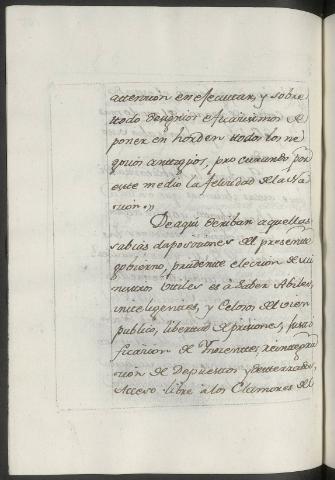 attencion en esecutar, y sobre
todo designios eficacisimos de
poner en horden todos los ne
gocios antiguos, procurando por
este medio la felicidad de la Na
cion.,,
De aqui deriban aquellas
sabias disposiciones del presente
gobierno, prudente eleccion de mi
nistros utiles es à saber Abiles,
inteligentes, y Celosos del vien
publico, libertad de prisiones, justi
ficacion de Inocentes, reintegra
cion de Depuestos y desterrados,
Acceso libre à los Clamores del